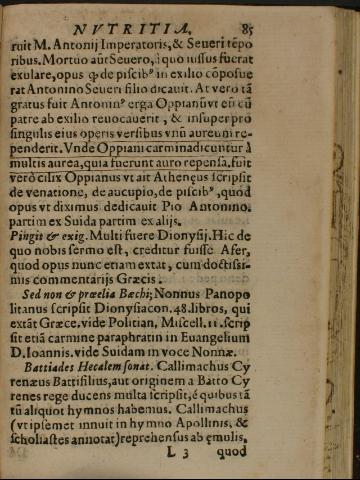 NVTRITIA. 85
ruit M. Antonij Imperatoris, & Seueri tẽpo
ribus. Mortuo aũt Seuero, à quo iussus fuerat
exulare, opus qđ de piscibꝰ in exilio cõposue
rat Antonino Seueri filio dicauit. At vero tã
gratus fuit Antoninꝰ erga Oppianũ vt eũ cũ
patre ab exilio reuocauerit, & insuper pro
singulis eius operis versibus vnũ aureum re-
penderit. Vnde Oppiani carmina dicuntur à
multis aurea, quia fuerunt auro repensa. fuit
verò cilix Oppianus vt ait Athenęus scripsit
de venatione, de aucupio, de piscibꝰ, quod
opus vt diximus dedicauit Pio Antonino.
partim ex Suida partim ex alijs.
Pingit & exig. Multi fuere Dionysij. Hic de
quo nobis sermo est, creditur fuisse Afer,
quod opus nunc etiam extat, cum doctissi-
mis commentarijs Græcis.
Sed non & prœlia Bacchi; Nonnus Panopo
litanus scripsit Dionysiacon. 48. libros, qui
extãt Græce. vide Politian, Miscell. 11. scrip
sit etiã carmine paraphratin in Euangelium
D. Ioannis. vide Suidam in voce Nonnæ.
Battiades Hecalem sonat. Callimachus Cy
renæus Battifilius, aut originem a Batto Cy
renes rege ducens multa scripsit, è quibus tã
tũ aliquot hymnos habemus. Callimachus
(vt ipsemet innuit in hymno Apollinis, &
scholiastes annotat) reprehensus ab ęmulis,
L 3 quod